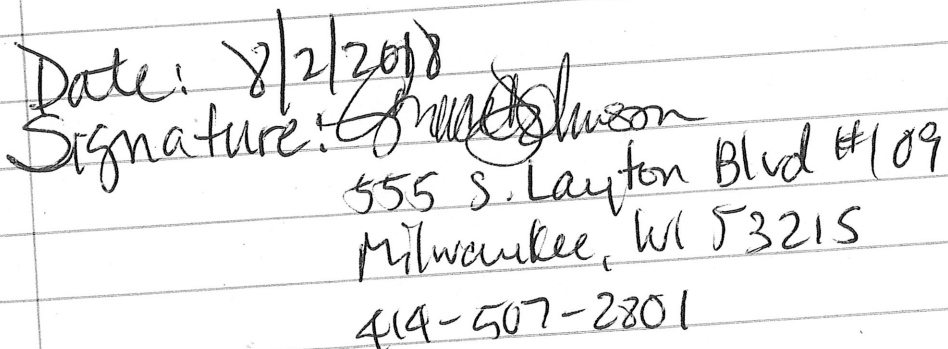 Date: 8/2/2018
Signature: Johnson
555 S. Layton Blvd #109
Milwaukee, WI 53215
414-507-2801